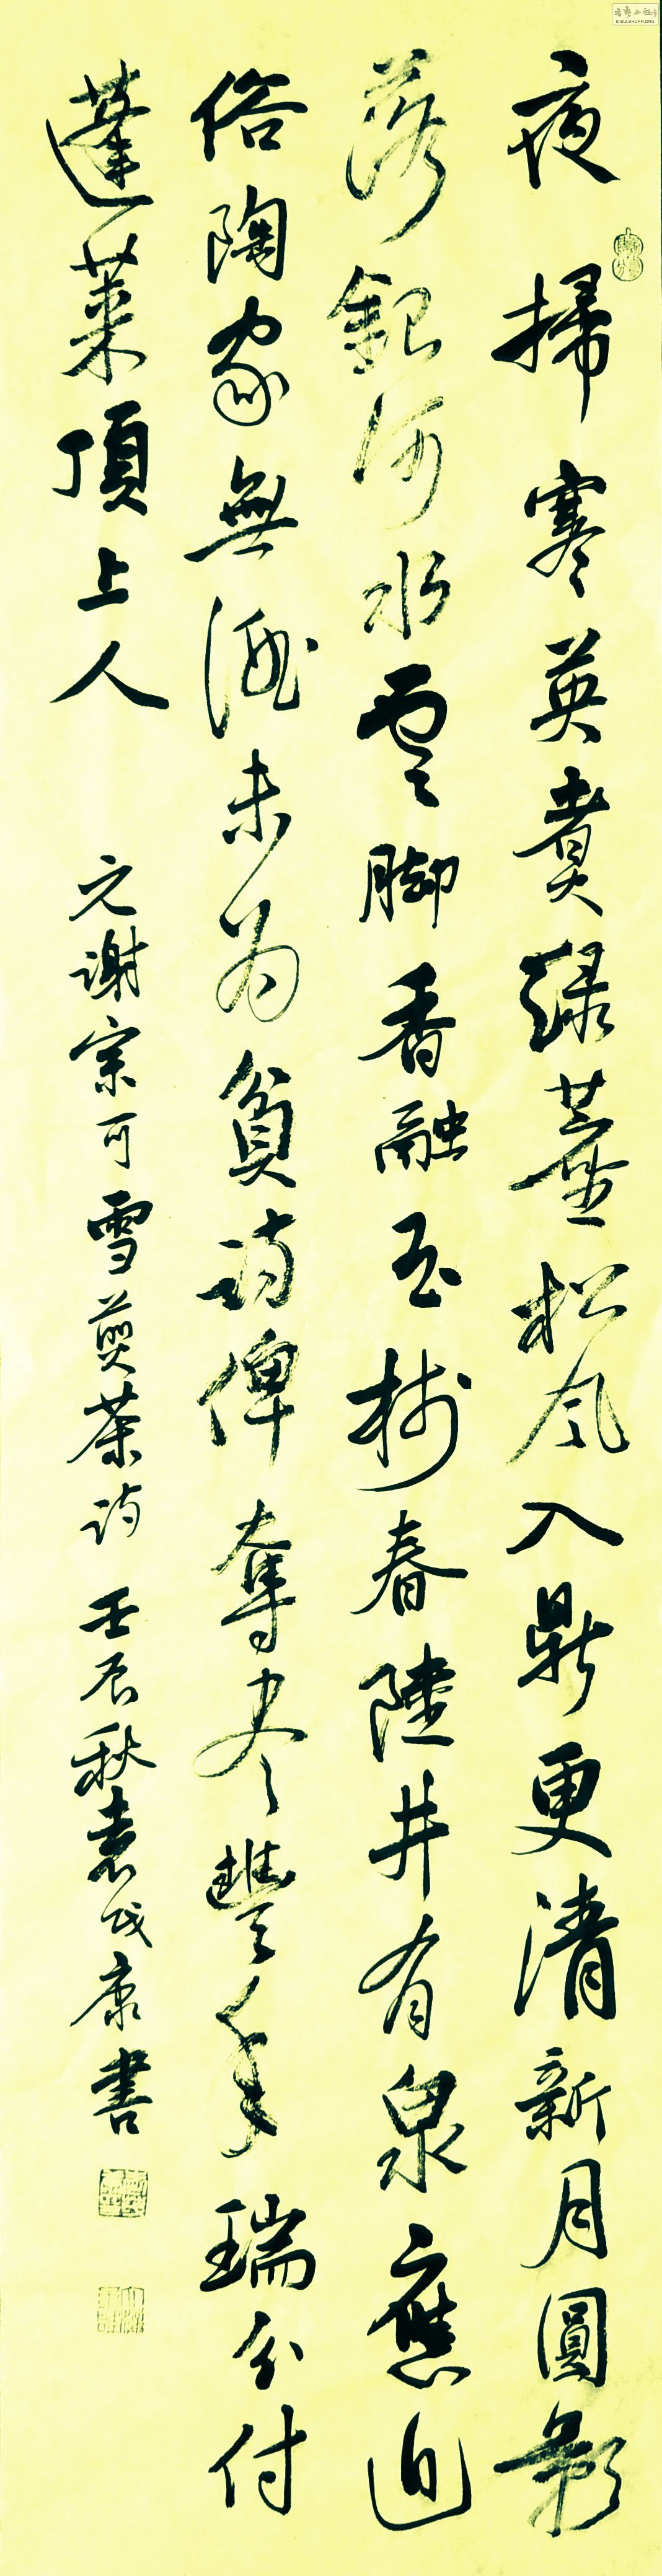 夜掃寒英煑緑塵松風入鼎更清新月圓影
落銀河水雲脚香融玉樹春陸井有泉應迫
俗陶家無酒未為貧詩俾奪盡豐年瑞分付
蓬萊頂上人
元謝宗可雪煎茶詩 壬辰秋袁康書